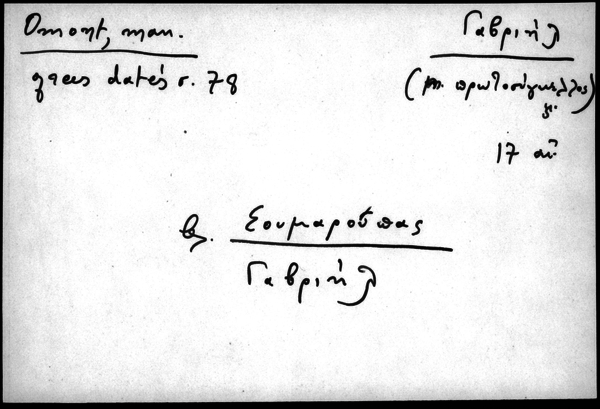 Omont, man.
grecs datés σ. 78
Γαβριήλ
(μ. πρωτοσύγκελλος)
17 αἰ.
βλ. Σουμαρούπας
Γαβριήλ